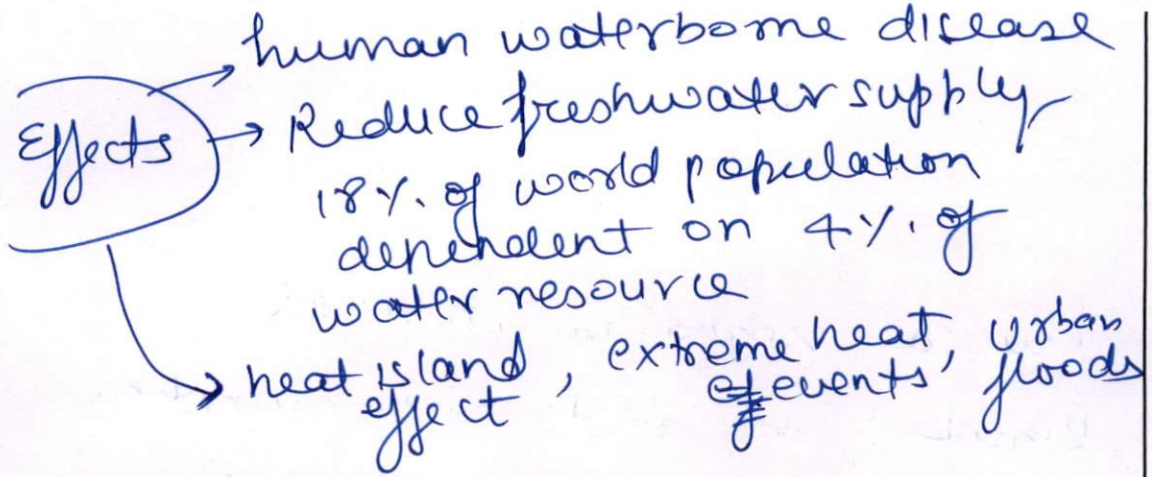 Effects
human waterborne disease
Reduce freshwater supply
18%. of world population
dependent on 4%. of
water resource
heat island effect, extreme heat events, urban floods